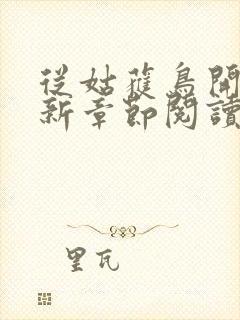 從姑蘇鳥開
新章節閱讀
里瓦